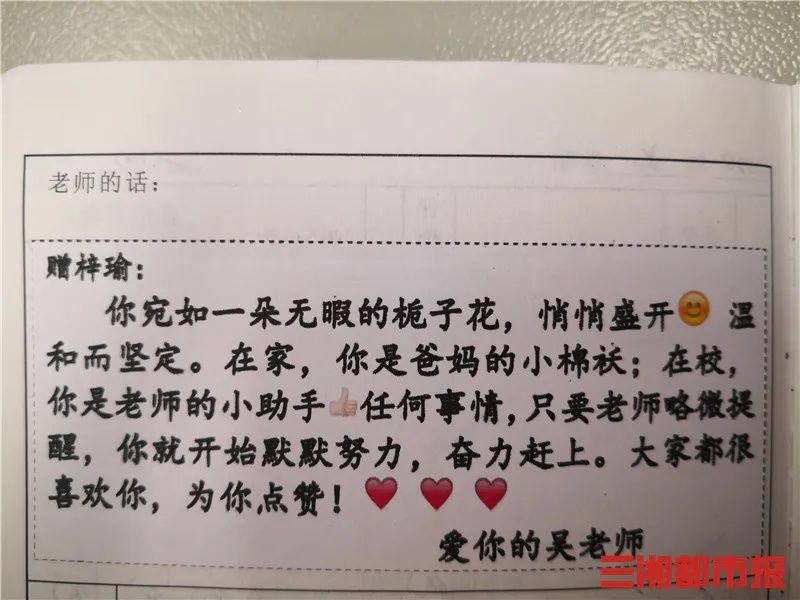 老师的话：
赠梓瑜：
你宛如一朵无暇的栀子花，悄悄盛开😊 温
和而坚定。在家，你是爸妈的小棉袄；在校，
你是老师的小助手👍任何事情，只要老师略微提
醒，你就开始默默努力，奋力赶上。大家都很
喜欢你，为你点赞！❤️ ❤️ ❤️
爱你的吴老师
三湘都市报